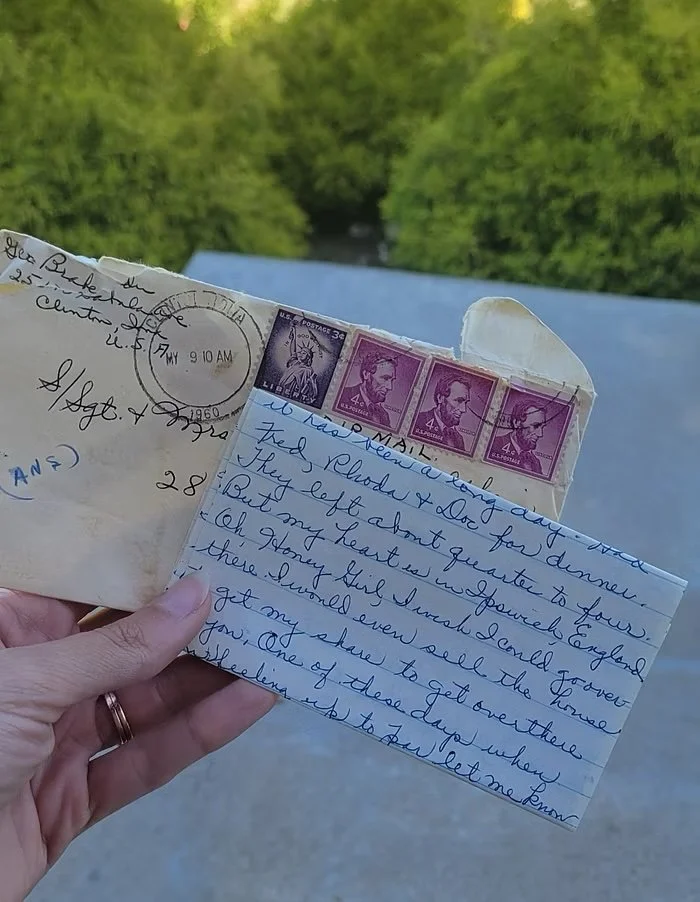 Geo
Clinton,
U.S.A.
MY 9 10 AM
1960
U.S. POSTAGE 3¢
LIBERTY
4¢
U.S. POSTAGE
4¢
U.S. POSTAGE
4¢
U.S. POSTAGE
AIR MAIL
S/Sgt. & Mrs
(ANS)
28
it has been a long day. Had
Fred, Rhoda & Doc for dinner.
They left about quarter to four.
But my heart is in Ipswich, England
Oh Honey Girl, I wish I could go over
there. I would even sell the house
get my share to get over there
you. One of these days when
up to par let me know